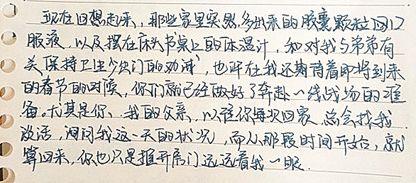 现在回想起来，那些家里突然多出来的胶囊颗粒口
服液，以及摆在床头书桌上的体温计，和对我与弟弟有
关保持卫生少出门的劝诫，也许在我还期待着即将到来
的春节的时候，你们就已经做好了奔赴一线战场的准
备。尤其是你，我的父亲，以往你每次回家，总会找我
谈话，询问我这一天的状况，而从那段时间开始，就
算回来，你也只是推开房门远远看我一眼。